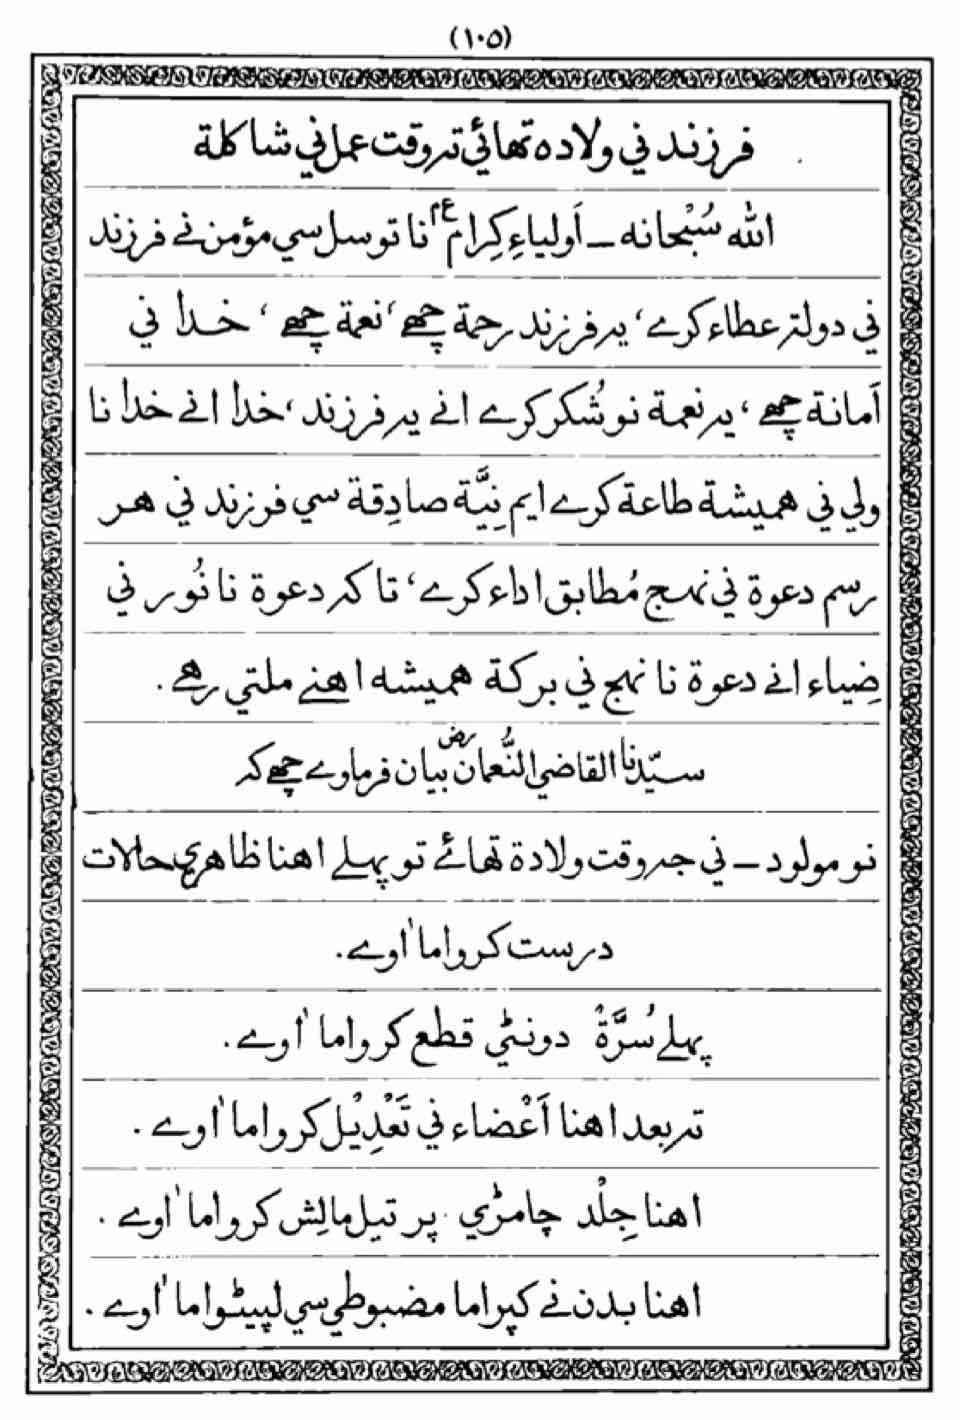 (١٠٥)
فرزند ني ولادة تهائي تر وقت عمل ني شاكلة
الله سُبْحانه ـ اَولياءِ كِرام ع م نا توسل سي مؤمن نے فرزند
ني دولتر عطاء كرے، يہ فرزند رحمة چھے، نعمة چھے، خدا ني
اَمانة چھے، يہ نعمة نو شُكر كرے انے يہ فرزند، خدا انے خدا نا
ولي ني هميشة طاعة كرے ايم نِيَّة صادِقة سي فرزند ني هر
رسم دعوة ني نهج مُطابق اداء كرے، تاكہ دعوة نا نُور ني
ضِياء انے دعوة نا نهج ني بركة هميشه اهنے ملتي رهے.
سيّدنا القاضي النُّعمان رض بيان فرماوے چھے كہ
نو مولود ـ ني جہ وقت ولادة تھائے تو پہلے اهنا ظاهري حالات
درست كرواما اٰوے.
پہلے سُرَّةْ دونٹي قطع كرواما اٰوے.
تہ بعد اهنا اَعْضاء ني تَعْدِيْل كرواما اٰوے.
اهنا جِلْد چامڑي پر تيل مالِش كرواما اٰوے.
اهنا بدن نے كپراما مضبوطي سي لپيٹواما اٰوے.